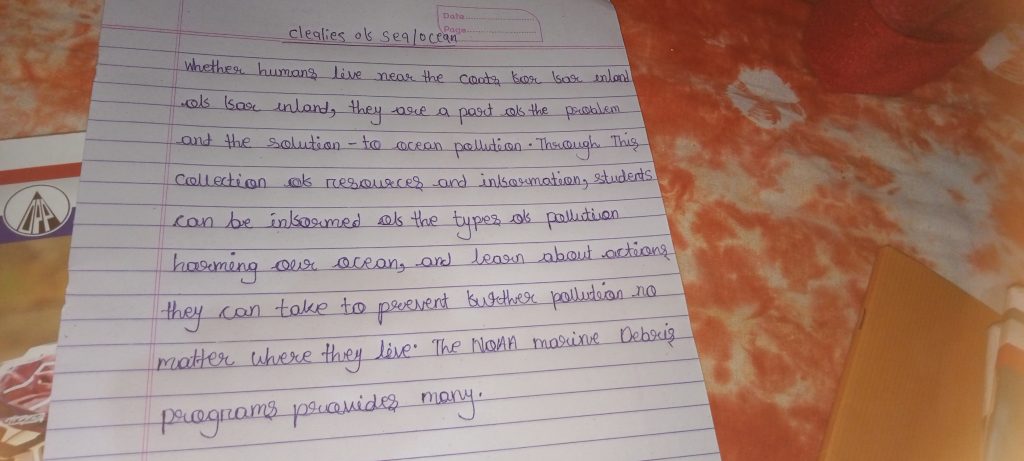 Date
Page
clealies of sea/ocean
Whether humans live near the coats for far inland
of far inland, they are a part of the problem
and the solution - to ocean pollution. Through This
Collection of resources and information, students
can be informed of the types of pollution
harming our ocean, and learn about actions
they can take to prevent further pollution no
matter where they live. The NOAA marine Debris
programs provides many.